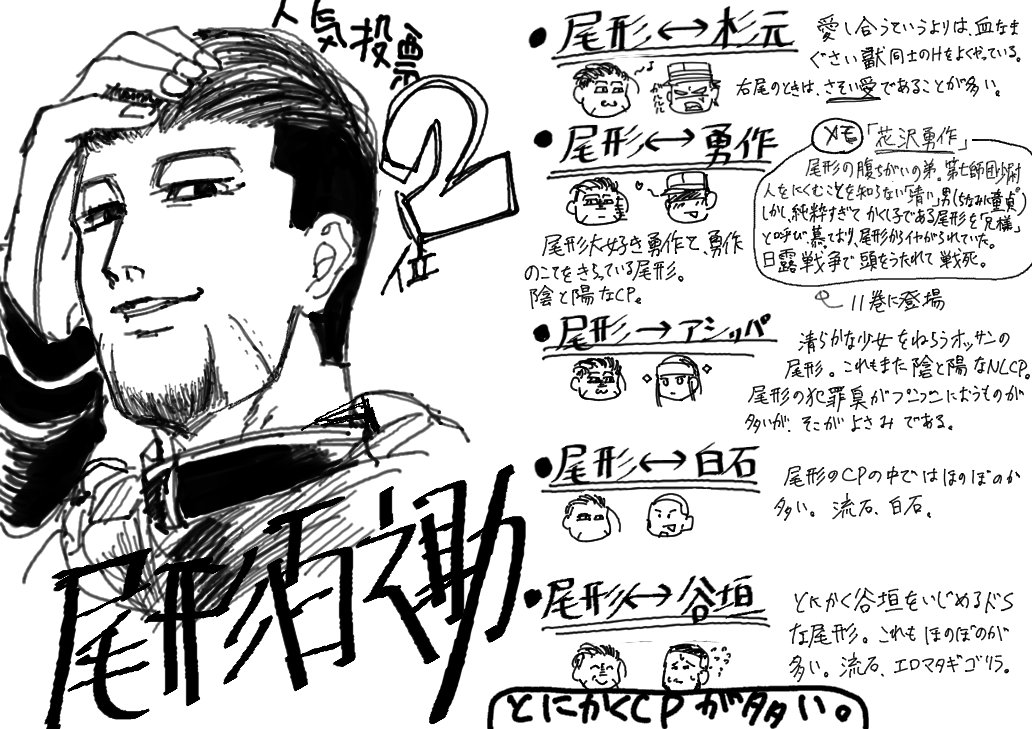 人気投票
2
位
尾形百之助
●尾形↔杉元
愛し合うていうよりは、血なま
ぐさい獣同士のHをよくやっている。
右尾のときは、さそい愛であることが多い。
●尾形↔勇作
メモ「花沢勇作」
尾形の腹ちがいの弟。第七師団少尉
人をにくむことを知らない「清い」男(ちなみに童貞)
しかし、純粋すぎてかくし子である尾形を「兄様」
と呼び、慕ており、尾形からイヤがられていた。
日露戦争で頭をうたれて戦死。
11巻に登場
尾形大好き勇作と、勇作
のことをきらっている尾形。
陰と陽なCP。
●尾形→アシリパ
清らかな少女をねらうオッサンの
尾形。これもまた陰と陽なNLCP。
尾形の犯罪臭がプンプンにおうものが
多いが、そこがよさみである。
●尾形↔白石
尾形のCPの中ではほのぼのが
多い。流石、白石。
●尾形↔谷垣
とにかく谷垣をいじめるドS
な尾形。これもほのぼのが
多い。流石、エロマタギゴリラ。
とにかくCPが多い。